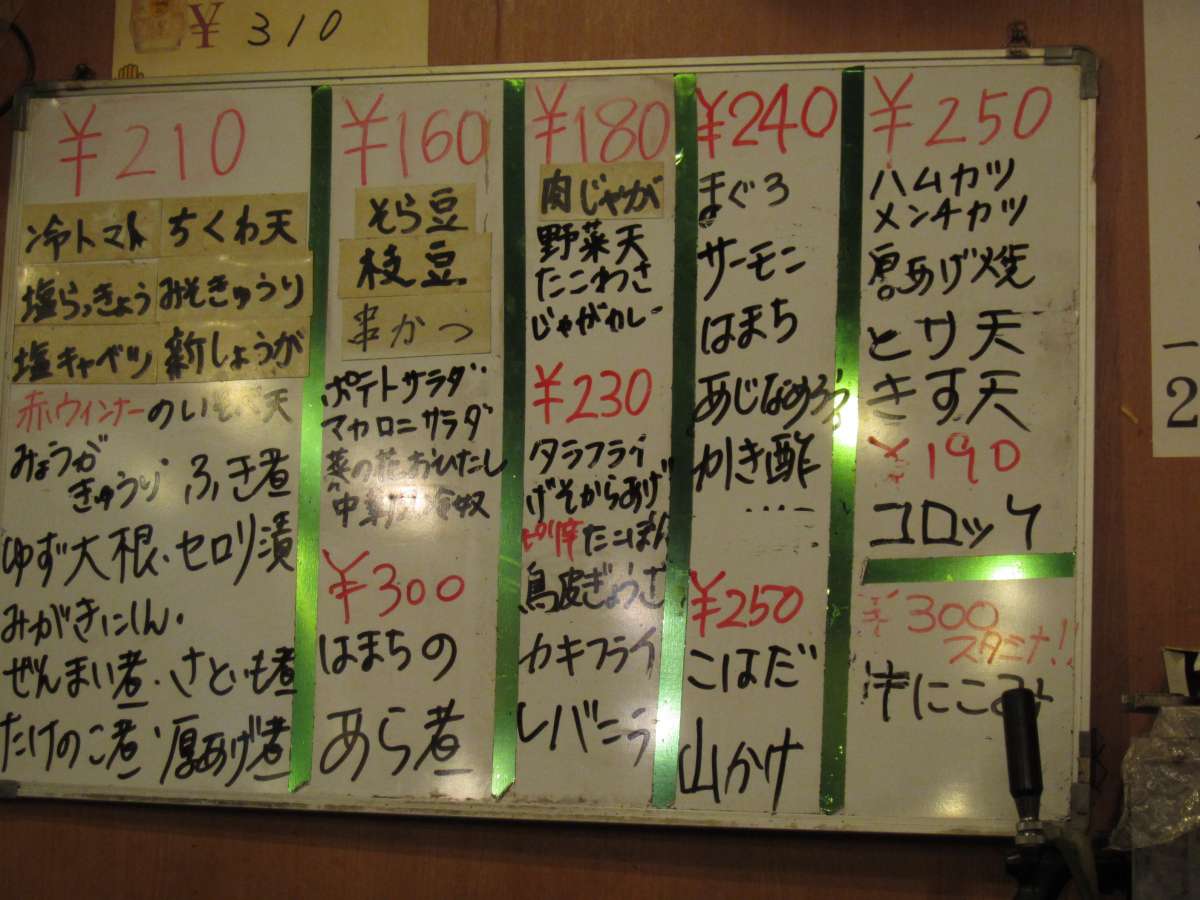 ¥310
¥210
冷トマト ちくわ天
塩らっきょう みそきゅうり
塩キャベツ 新しょうが
赤ウィンナーのいそ 天
みょうが
きゅうり ふき煮
ゆず大根・セロリ漬
みがきにしん・
ぜんまい煮・さといも煮
たけのこ煮・厚あげ煮
¥160
そら豆
枝豆
串かつ
ポテトサラダ
マカロニサラダ
菜の花おひたし
中華 冷奴
¥300
はまちの
あら煮
¥180
肉じゃが
野菜天
たこわさ
じゃがカレー
¥230
タラフライ
げそからあげ
ピリ辛たこぽん
鳥皮ぎょうざ
カキフライ
レバニラ
¥240
まぐろ
サーモン
はまち
あじなめろう
かき酢
¥250
こはだ
山かけ
¥250
ハムカツ
メンチカツ
厚あげ焼
とり天
きす天
¥190
コロッケ
¥300
スタミナ!!
牛にこみ
一
2